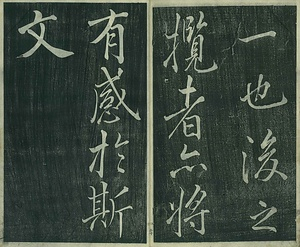 一也後之
攬者亦將
有感於斯
文